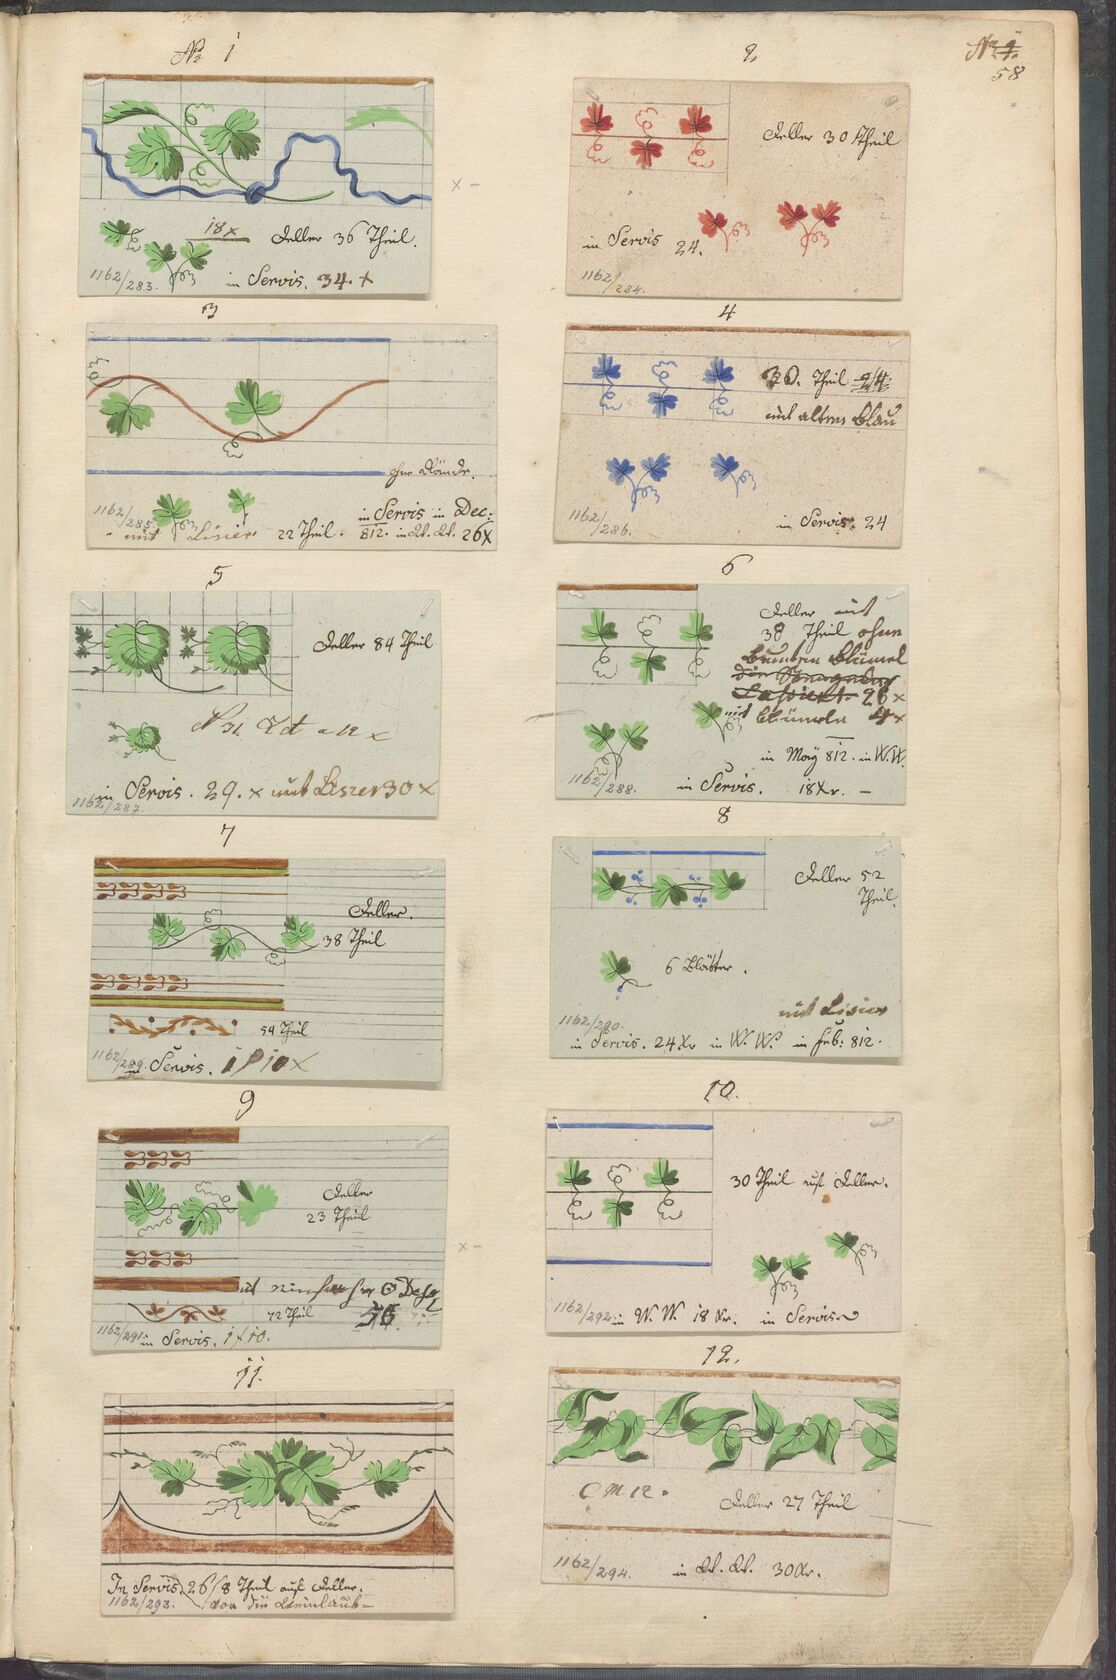 N: 1
2.
58
18x
Deller 36 Theil.
1162/283.
in Servis. 34. x
Deller 30 Theil
in Servis 24.
1162/284.
3
ohne Rände.
1162/285.
in Servis in Dec:
mit Lisier 22 Theil. 812. in 26x
4
30. Theil 24
mit altem Blau
1162/286.
in Servis. 24
5
Deller 84 Theil
in Servis. 29. x mit Lisier 30 x
1162/287.
6
Deller mit
38 Theil ohne
26 x
mit Blümeln 4x
in May 812. in W.W.
1162/288.
in Servis. 18Xr. –
7
Deller.
38 Theil
54 Theil
1162/289.
in Servis. 1 f 10 x
8
Deller 52
Theil.
6 Blätter.
mit Lisier
1162/290.
in Servis. 24Xr in W. W. in Feb: 812.
9
Deller
23 Theil
72 Theil 36
1162/291.
in Servis. 1 f 10.
10.
30 Theil auf Deller.
1162/292.
in W. W. 18 Xr. in Servis
11.
In Servis 26/8 Theil auf Deller.
1162/293.
von die
12.
C M 12.
Deller 27 Theil
1162/294.
in 30Xr.